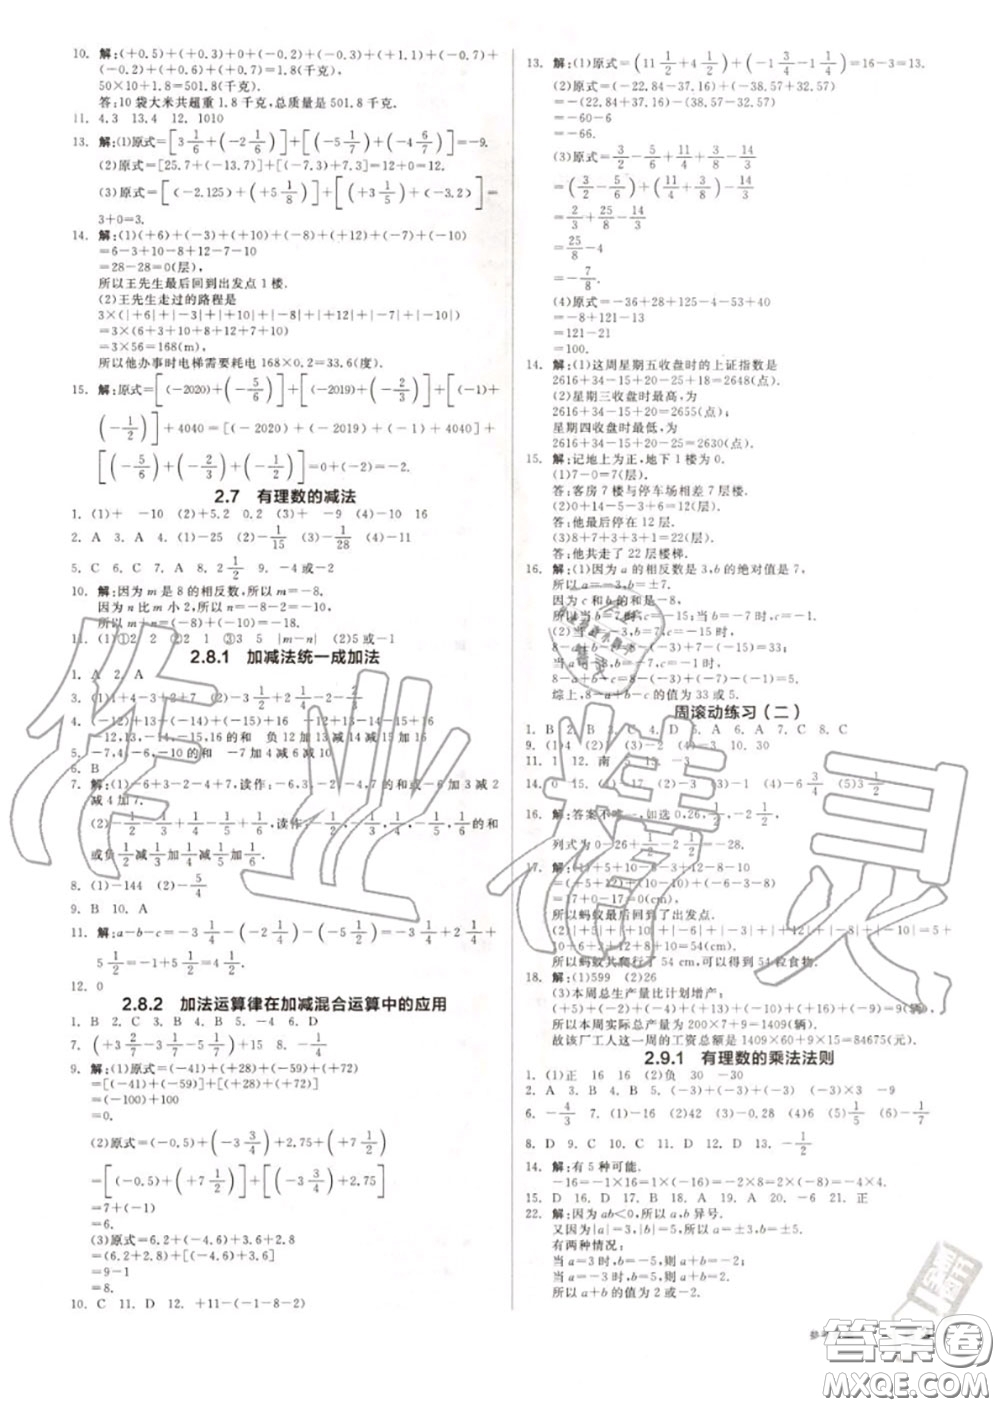 10. 解:(+0.5)+(+0.3)+0+(-0.2)+(-0.3)+(+1.1)+(-0.7)+
(-0.2)+(+0.6)+(+0.7)=1.8(千克).
50×10+1.8=501.8(千克).
答:10袋大米共超重1.8千克,总质量是501.8千克.
11. 4.3 13.4 12. 1010
13. 解:(1)原式=[3 1/6+(-2 1/6)]+[(-5 1/7)+(-4 6/7)]=-9.
(2)原式=[25.7+(-13.7)]+[(-7.3)+7.3]=12+0=12.
(3)原式=[(-2.125)+(+5 1/8)]+[(+3 1/5)+(-3.2)]=
3+0=3.
14. 解:(1)(+6)+(-3)+(+10)+(-8)+(+12)+(-7)+(-10)
=6-3+10-8+12-7-10
=28-28=0(层),
所以王先生最后回到出发点1楼.
(2)王先生走过的路程是
3×(|+6|+|-3|+|+10|+|-8|+|+12|+|-7|+|-10|)
=3×(6+3+10+8+12+7+10)
=3×56=168(m),
所以他办事时电梯需要耗电168×0.2=33.6(度).
15. 解:原式=[(-2020)+(-5/6)]+[(-2019)+(-2/3)]+[(-1)+
(-1/2)]+4040=[(-2020)+(-2019)+(-1)+4040]+
[(-5/6)+(-2/3)+(-1/2)]=0+(-2)=-2.
2.7 有理数的减法
1. (1)+ -10 (2)+5.2 0.2 (3)+ -9 (4)-10 16
2. A 3. A 4. (1)-25 (2)-1/15 (3)-1/28 (4)-11
5. C 6. C 7. B 8. 2 1/2 9. -4或-2
10. 解:因为m是8的相反数,所以m=-8.
因为n比m小2,所以n=-8-2=-10.
所以m+n=(-8)+(-10)=-18.
11. (1)①2 2 ②2 1 ③3 5 |m-n| (2)5或-1
2.8.1 加减法统一成加法
1. A 2. A
3. (1)1+4-3+2+7 (2)-3 1/2+2 1/4+1 1/2
4. (-12)+(+13)+(-14)+(-15)+(+16) -12+13-14-15+16
-12,13,-14,-15,16的和 负12加13减14减15加16
5. -7,-4,-6,-10的和 -7减4减6减10
6. B
7. 解:(1)-6+3-2-4+7,读作:-6,3,-2,-4,7的和或-6加3减2
减4加7.
(2)-1/2-1/3+1/4-1/5+1/6,读作:-1/2,-1/3,1/4,-1/5,1/6的和
或负1/2减1/3加1/4减1/5加1/6.
8. (1)-144 (2)-5/4
9. B 10. A
11. 解:a-b-c=-3 1/4-(-2 1/4)-(-5 1/2)=-3 1/4+2 1/4+
5 1/2=-1+5 1/2=4 1/2.
12. 0
2.8.2 加法运算律在加减混合运算中的应用
1. B 2. C 3. B 4. B 5. -4 6. D
7. (+3 2/7-3 1/7-5 1/7)+15 8. -2
9. 解:(1)原式=(-41)+(+28)+(-59)+(+72)
=[(-41)+(-59)]+[(+28)+(+72)]
=(-100)+100
=0.
(2)原式=(-0.5)+(-3 3/4)+2.75+(+7 1/2)
=[(-0.5)+(+7 1/2)]+[(-3 3/4)+2.75]
=7+(-1)
=6.
(3)原式=6.2+(-4.6)-3.6+2.8
=(6.2+2.8)+[(-4.6)+3.6]
=9-1
=8.
10. C 11. D 12. +11-(-1-8-2)
13. 解:(1)原式=(11 1/2+4 1/2)+(-1 3/4-1 1/4)=16-3=13.
(2)原式=(-22.84-37.16)+(-38.57-32.57)
=-(22.84+37.16)-(38.57-32.57)
=-60-6
=-66.
(3)原式=3/2-5/6+11/4+3/4-53/8
=(3/2-5/6)+(11/4+3/4)-53/8
=2/3+25/8-14/3
=25/8-4
=-7/8.
(4)原式=-36+28+125-4-53+40
=-8+121-13
=121-21
=100.
14. 解:(1)这周星期五收盘时的上证指数是
2616+34-15+20-25+18=2648(点).
(2)星期三收盘时最高,为
2616+34-15+20=2655(点);
星期四收盘时最低,为
2616+34-15+20-25=2630(点).
15. 解:记地上为正,地下1楼为0.
(1)7-0=7(层).
答:客房7楼与停车场相差7层楼.
(2)0+14-5-3+6=12(层).
答:他最后停在12层.
(3)8+7+3+3+1=22(层).
答:他共走了22层楼梯.
16. 解:(1)因为a的相反数是3,b的绝对值是7,
所以a=-3,b=±7.
因为c和b的和是-8,
所以当b=7时,c=-15;当b=-7时,c=-1.
(2)当a=-3,b=7,c=-15时,
8-a+b-c=8-(-3)+7-(-15)=33;
当a=-3,b=-7,c=-1时,
8-a+b-c=8-(-3)+(-7)-(-1)=5.
综上,8-a+b-c的值为33或5.
周滚动练习(二)
1. B 2. B 3. C 4. D 5. A 6. D 7. C 8. C
9. (1)4 (2) (3)-2 (4)-3 10. 30
11. 1 12. 南 5 13. -3
14. 0 15. (1)17 (2)-3 (3)-27 (4)-6 3/4 (5)3 3/4
16. 解:答案不唯一,如选0,26,-1/2,-2 1/2,
列式为0-26+1/2-2 1/2=-28.
17. 解:(1)+5-3+10-8-6+12-10
=(5+10+12)+(-6-3-8)
=17+0-17=0(cm),
所以蚂蚁最后回到了出发点.
(2)|+5|+|-3|+|+10|+|-8|+|-6|+|+12|+|-10|=5+
10+6+2+12+8+10=54(cm).
所以蚂蚁共爬行了54 cm,可以得到54粒食物.
18. 解:(1)599 (2)26
(3)本周总生产量比计划增产:
(+5)+(-2)+(-4)+(+13)+(-10)+(+16)+(-9)=9(辆),
所以本周实际总产量为200×7+9=1409(辆).
故该厂工人这一周的工资总额是1409×60+9×15=84675(元).
2.9.1 有理数的乘法法则
1. (1)正 16 16 (2)负 30 -30
2. A 3. B 4. B 5. (-3)+(-3)+(-3) ×3 -9
6. -4/3 7. (1)-26 (2)42 (3)-0.28 (4)6 (5)1/5 (6)-1/7
8. D 9. C 10. C 11. D 12. D 13. -1/2
14. 解:有5种可能.
-16=-1×16=1×(-16)=-2×8=2×(-8)=-4×4.
15. D 16. D 17. B 18. A 19. A 20. -6 21. 正
22. 解:因为ab<0,所以a,b异号.
又因为|a|=3,|b|=5,所以a=±3,b=±5,
有两种情况:
当a=3时,b=-5,则a+b=-2;
当a=-3时,b=5,则a+b=2.
所以a+b的值为2或-2.
作业精灵
答案圈
MXQE.COM